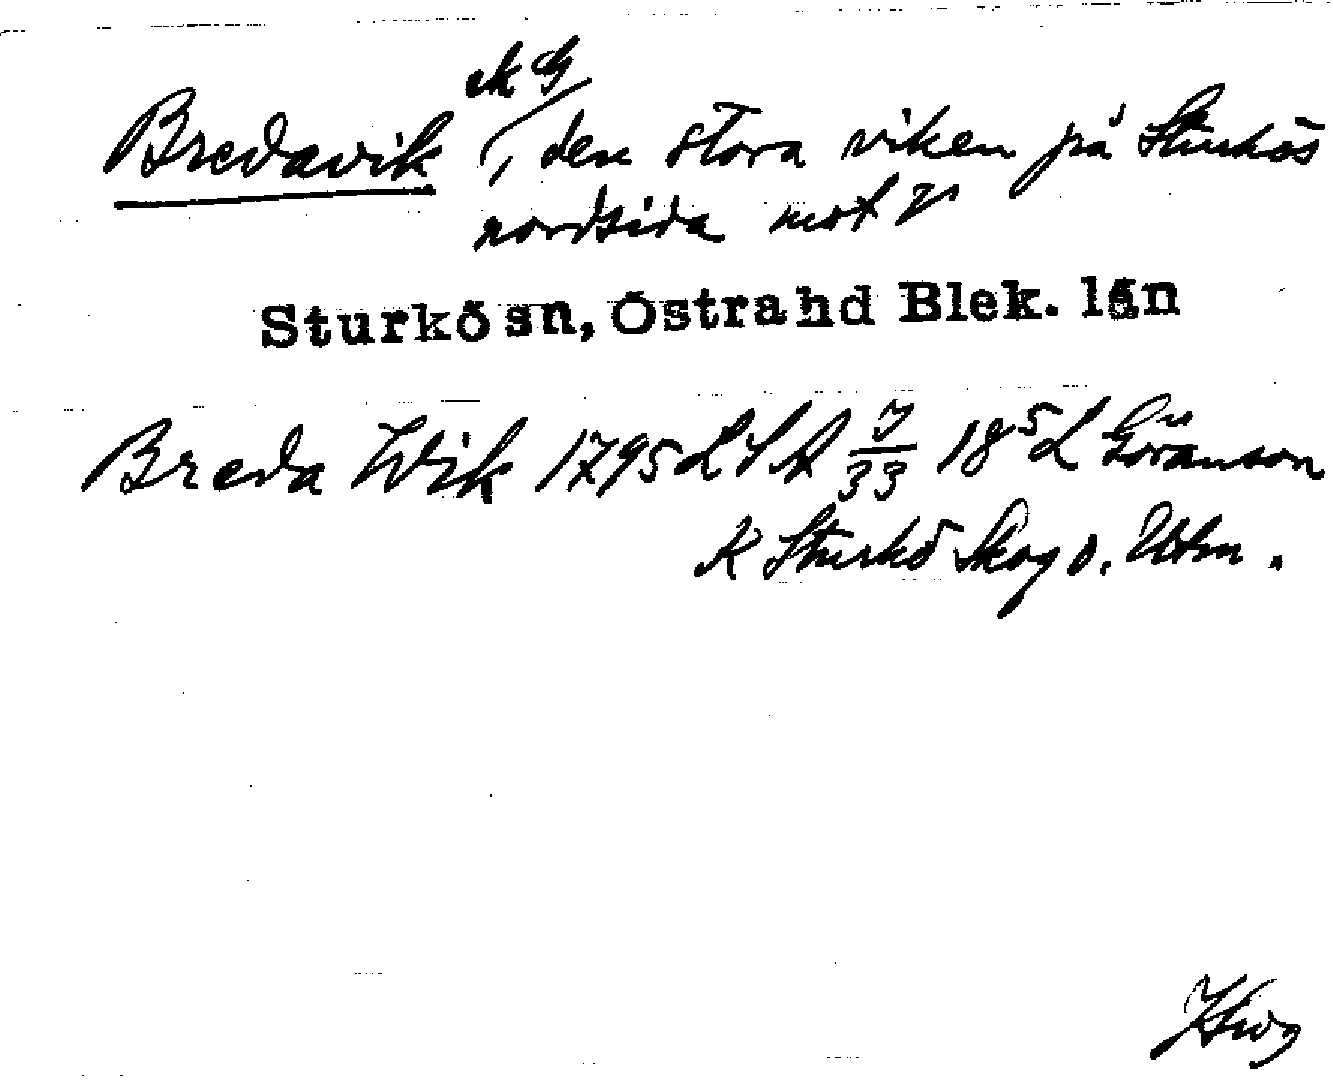 ek G
Bredavik, den stora viken på Sturkös
nordsida mot V
Sturkö sn, Östra hd Blek. län
Breda Wik 1795 LSA 7/33 18 5 L Göranson
K Sturkö Skog o. Utm.